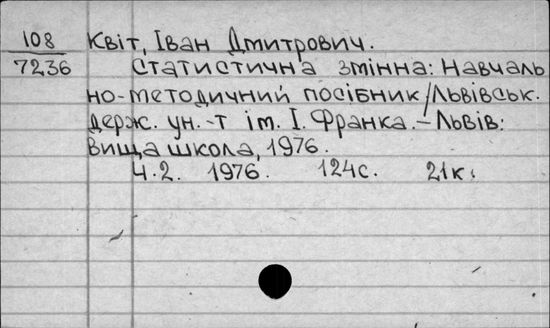 108 Квіт, Іван Дмитрович.
7236 Статистична змінна: Навчаль
но-методичний посібник/Львівськ.
держ. ун.-т ім. І. Франка.-Львів:
Вища школа, 1976.
4.2. 1976. 124с. 21к.